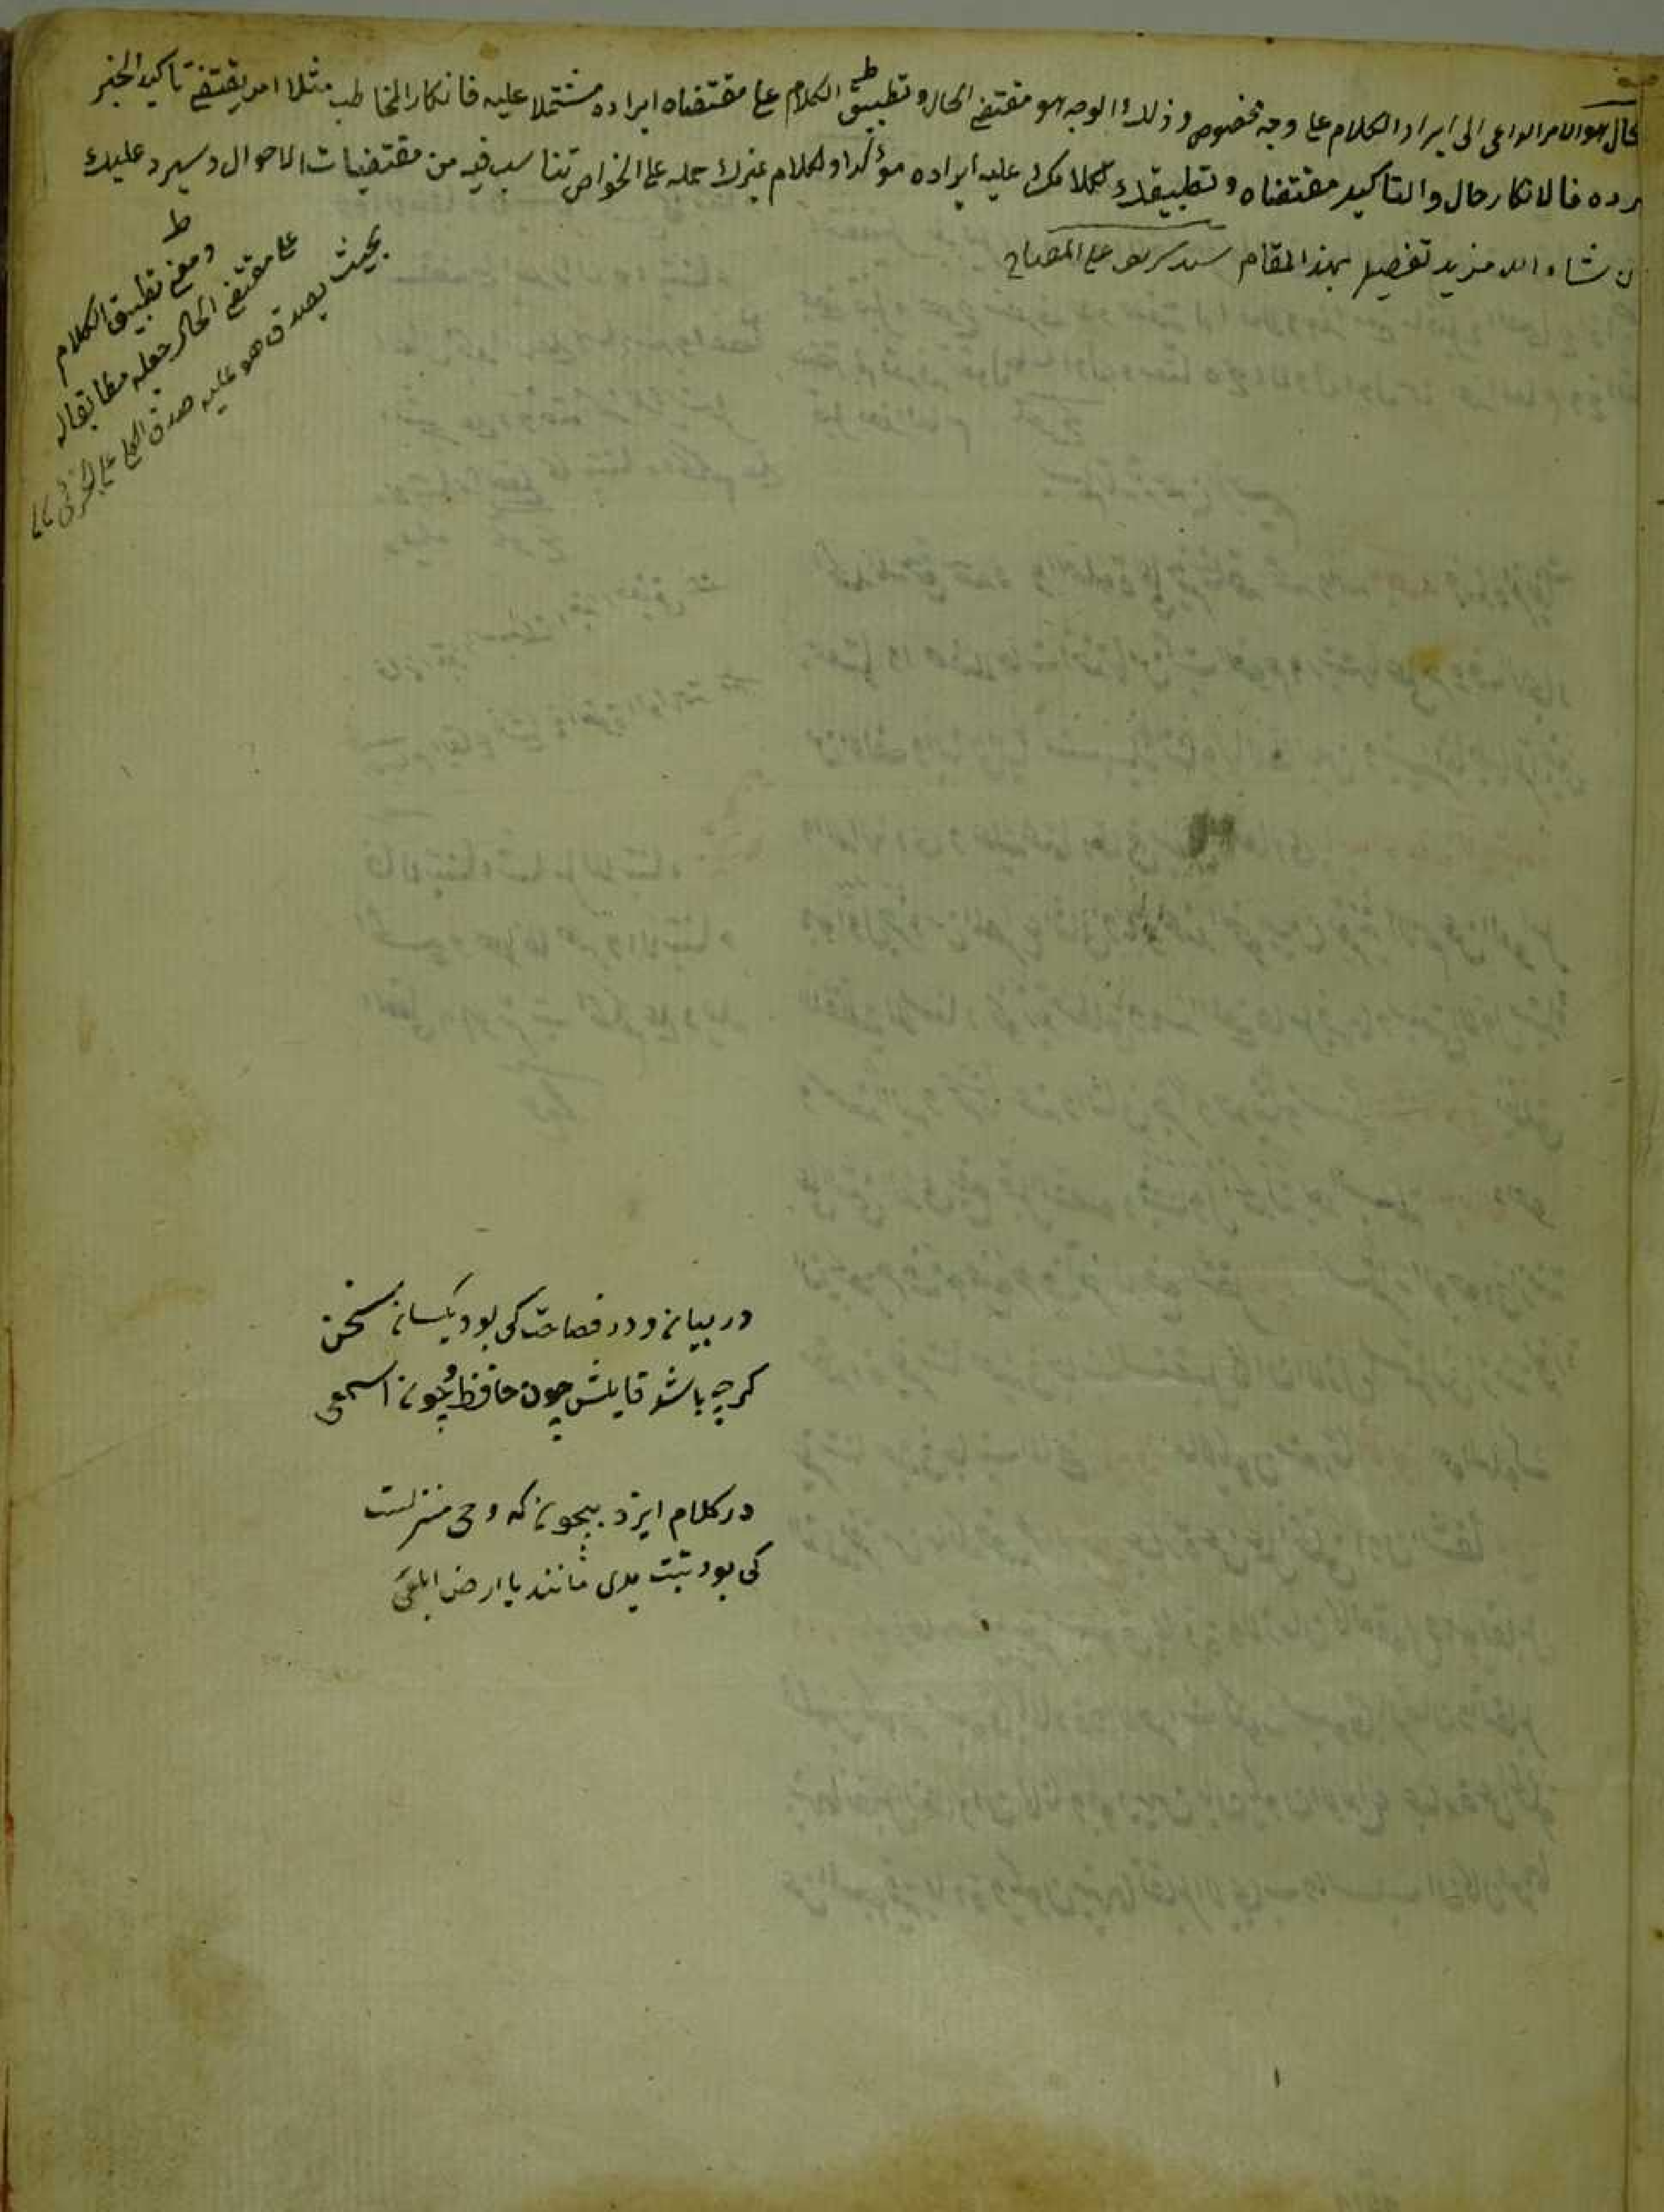 الحال هو الامر الداعى الى ايراد الكلام على وجه مخصوص وذلك الوجه هو مقتضى الحال وتطبيق الكلام على مقتضاه ايراده مشتملا عليه فانكار المخاطب مثلا امر يقتضى تاكيد الخبر
فالانكار حال والتاكيد مقتضاه وتطبيقك كلامك عليه ايراده مؤكدا وكلام غيرك حمله على الخواص تناسب فيه من مقتضيات الاحوال وسيرد عليك
ان شاء الله مزيد تفصيل بهذا المقام سيد شريف على المصباح
ط
ومعنى تطبيق الكلام
على مقتضى الحال جعله مطابقا له
بحيث يصدق هو عليه صدق الكلى على الجزئى
در بيان و در فصاحت كى بود يكسان سخن
كرچه باشد قايلش چون حافظ و چون اسمعى
در كلام ايزد بيچون كه وحى منزلست
كى بود تبت يدى مانند يا ارض ابلعى